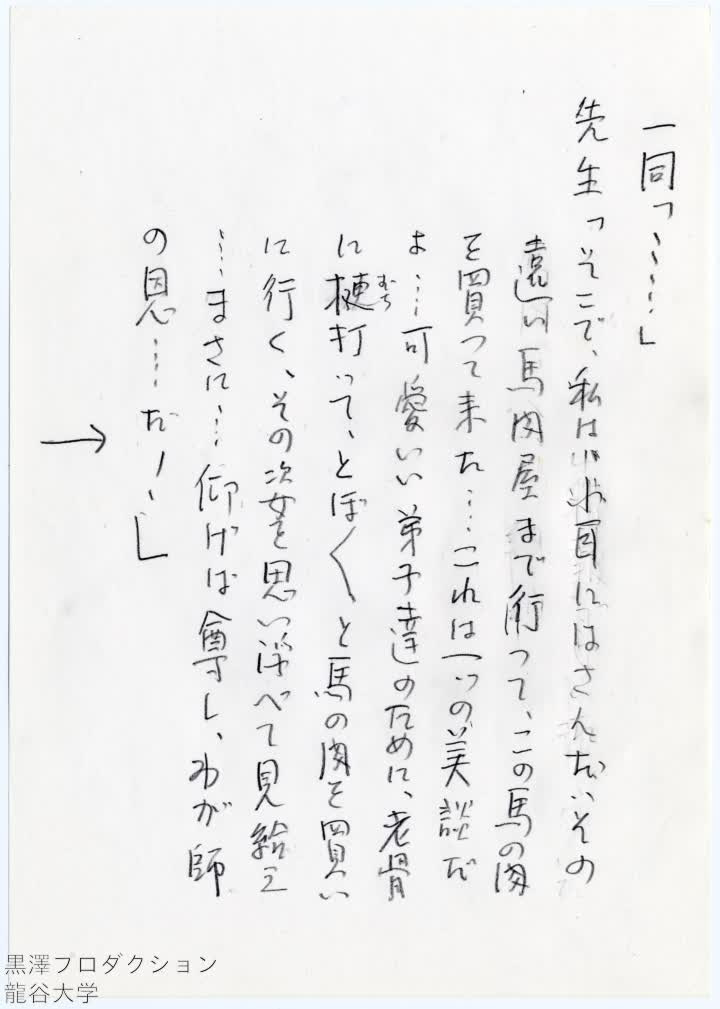 一同「……」
先生「そこで、私は小耳にはさんだ、その
遠い馬肉屋まで行って、この馬の肉
を買って来た…これは一つの美談だ
よ…可愛いい弟子達のために、老骨
に梗打って、とぼ〱と馬の肉を買い
むち
に行く、その姿を思い浮べて見給え
……まさに…仰げば尊し、わが師
の恩……だ！」
黒澤プロダクション
龍谷大学